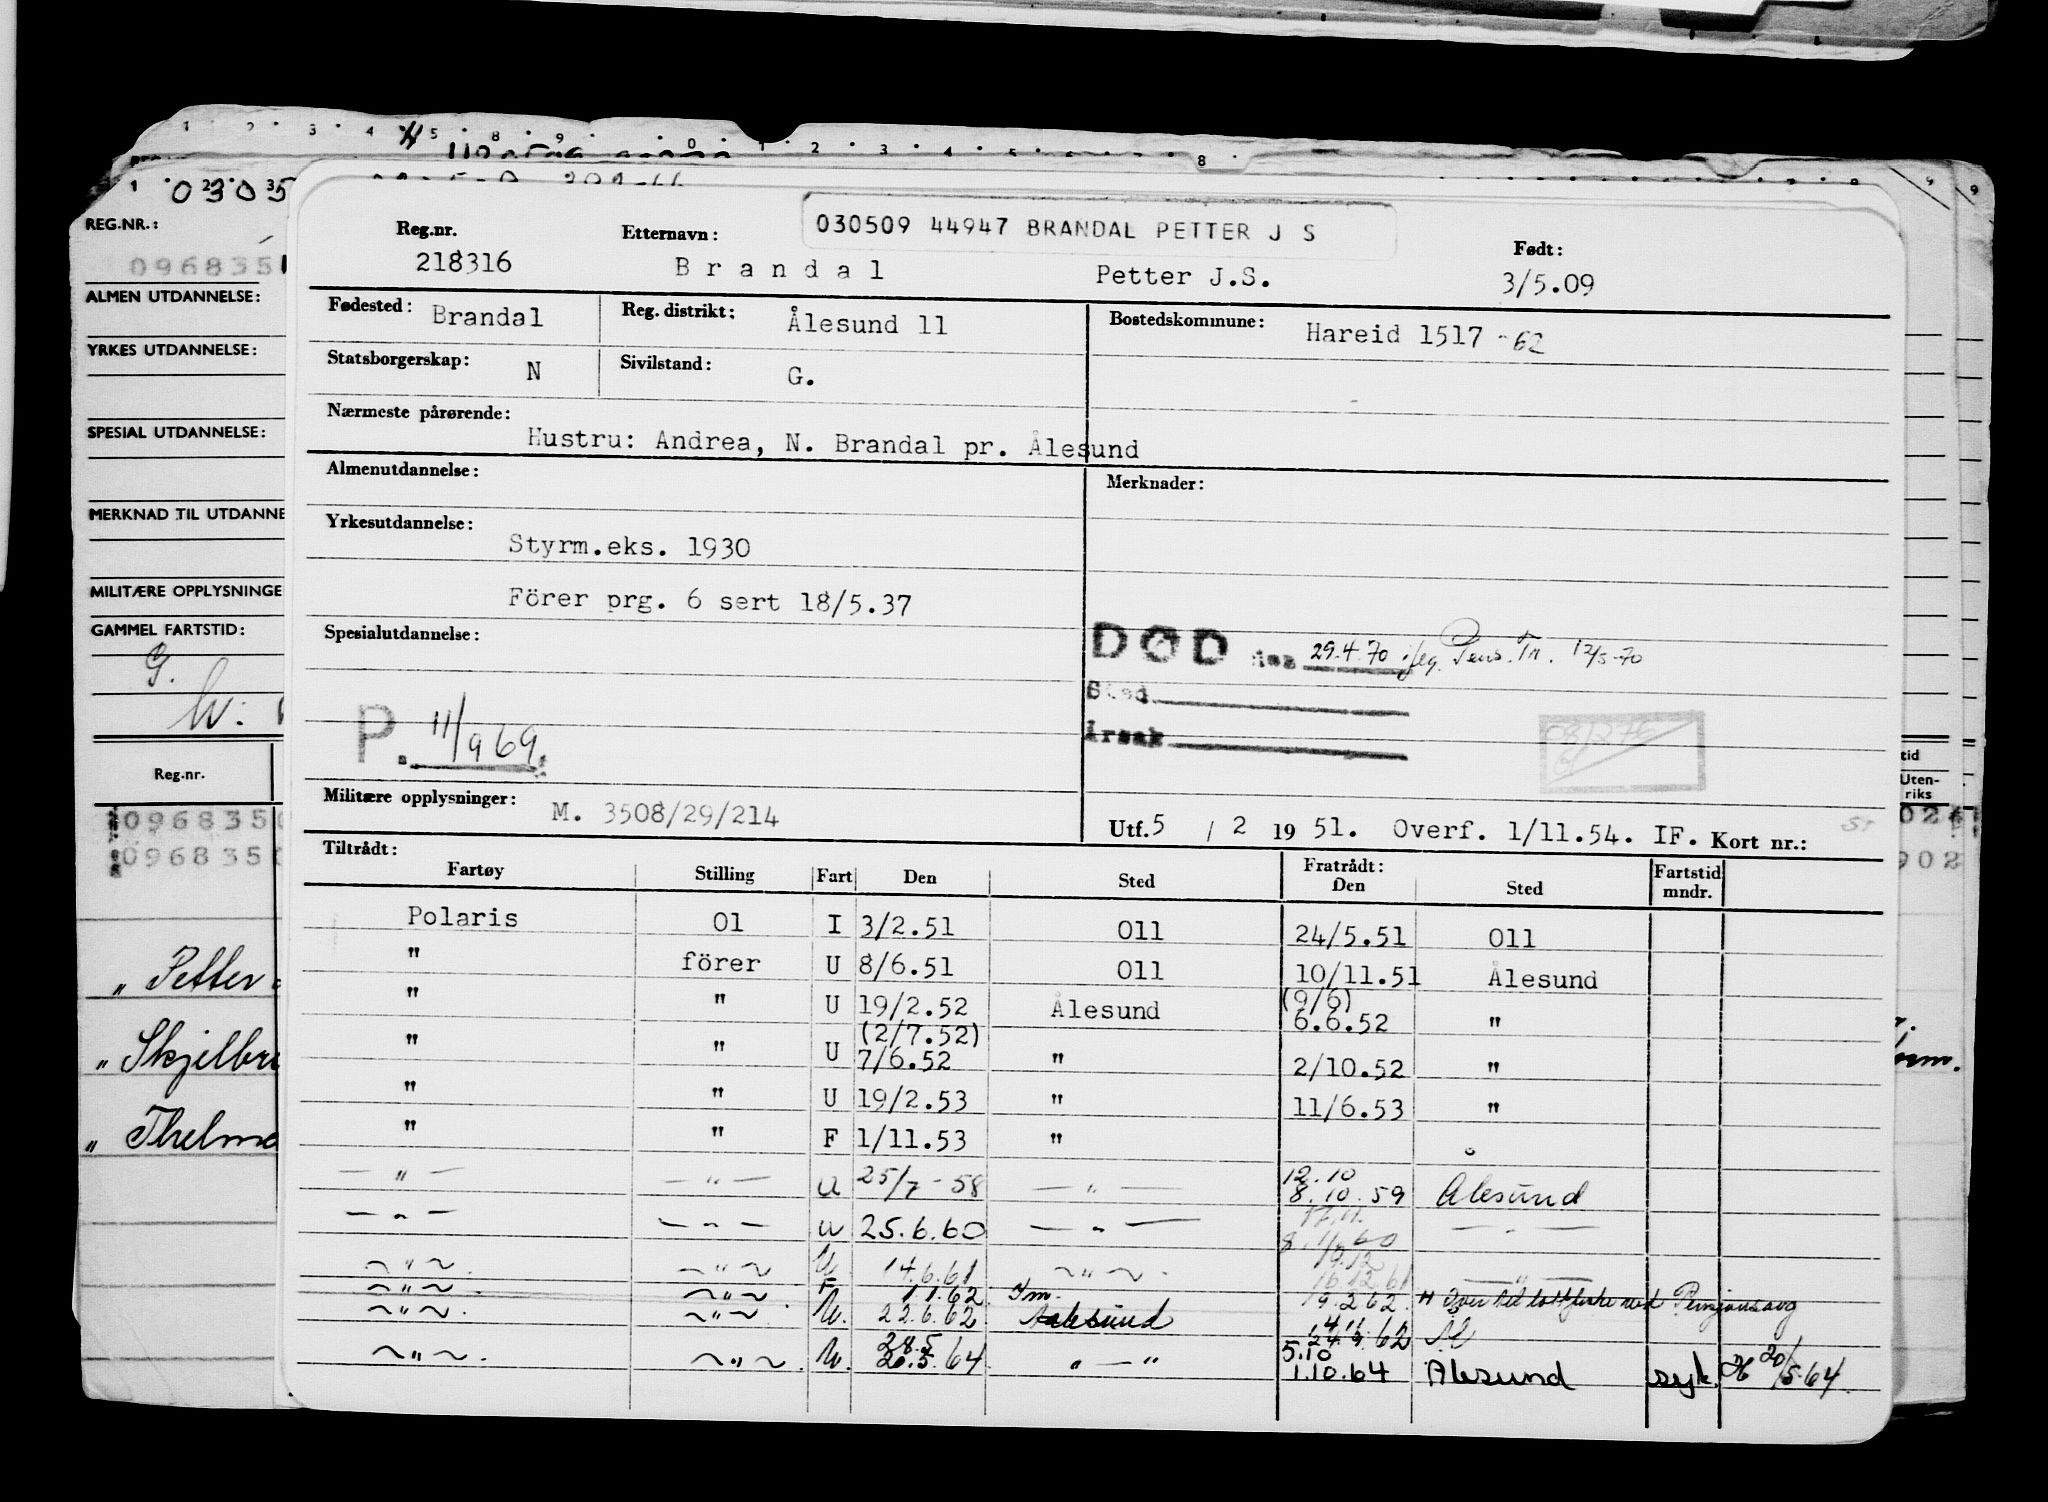 030509 44947 BRANDAL PETTER J S
Reg.nr. Etternavn: Født:
218316 Brandal Petter J.S. 3/5.09
Fødested: Brandal Reg. distrikt: Ålesund 11 Bostedskommune: Hareid 1517 -62
Statsborgerskap: N Sivilstand: G.
Nærmeste pårørende:
Hustru: Andrea, N. Brandal pr. Ålesund
Almenutdannelse: Merknader:
Yrkesutdannelse:
Styrm.eks. 1930
Förer prg. 6 sert 18/5.37
Spesialutdannelse:
DØD den 29.4.70 Pens. Tr. 12/5-70
Sted
Årsak
P. 11/9 69.
Militære opplysninger: M. 3508/29/214
Utf. 5 / 2 19 51. Overf. 1/11.54. IF. Kort nr.:
Tiltrådt: Fratrådt:
Fartøy Stilling Fart Den Sted Den Sted Fartstid mndr.
Polaris Ol I 3/2.51 Oll 24/5.51 Oll
" förer U 8/6.51 Oll 10/11.51 Ålesund
" " U 19/2.52 Ålesund (9/6) 6.6.52 "
" " U (2/7.52) 7/6.52 " 2/10.52 "
" " U 19/2.53 " 11/6.53 "
" " F 1/11.53 "
— " — — " — U 25/7-58 — " — 12.10 8.10.59 Ålesund
— " — — " — U 25.6.60 — " — 17.11. — " —
~ " ~ ~ " ~ U 14.6.61 ~ " ~ 19.12 16.12.61 — " —
~ " ~ ~ " ~ F 1.1.62 19.2.62
~ " ~ ~ " ~ U. 22.6.62 Aalesund 62
~ " ~ ~ " ~ U. 28.5 20.5.64 " — " 5.10 1.10.64 Ålesund syk. 20/5-64
REG.NR.:
ALMEN UTDANNELSE:
YRKES UTDANNELSE:
SPESIAL UTDANNELSE:
MERKNAD TIL UTDANNE
MILITÆRE OPPLYSNINGE
GAMMEL FARTSTID:
G.
Reg.nr.
tid
Uten-
riks
0968350
0968350
902
" Petter
" Skjelbre
" Thelma